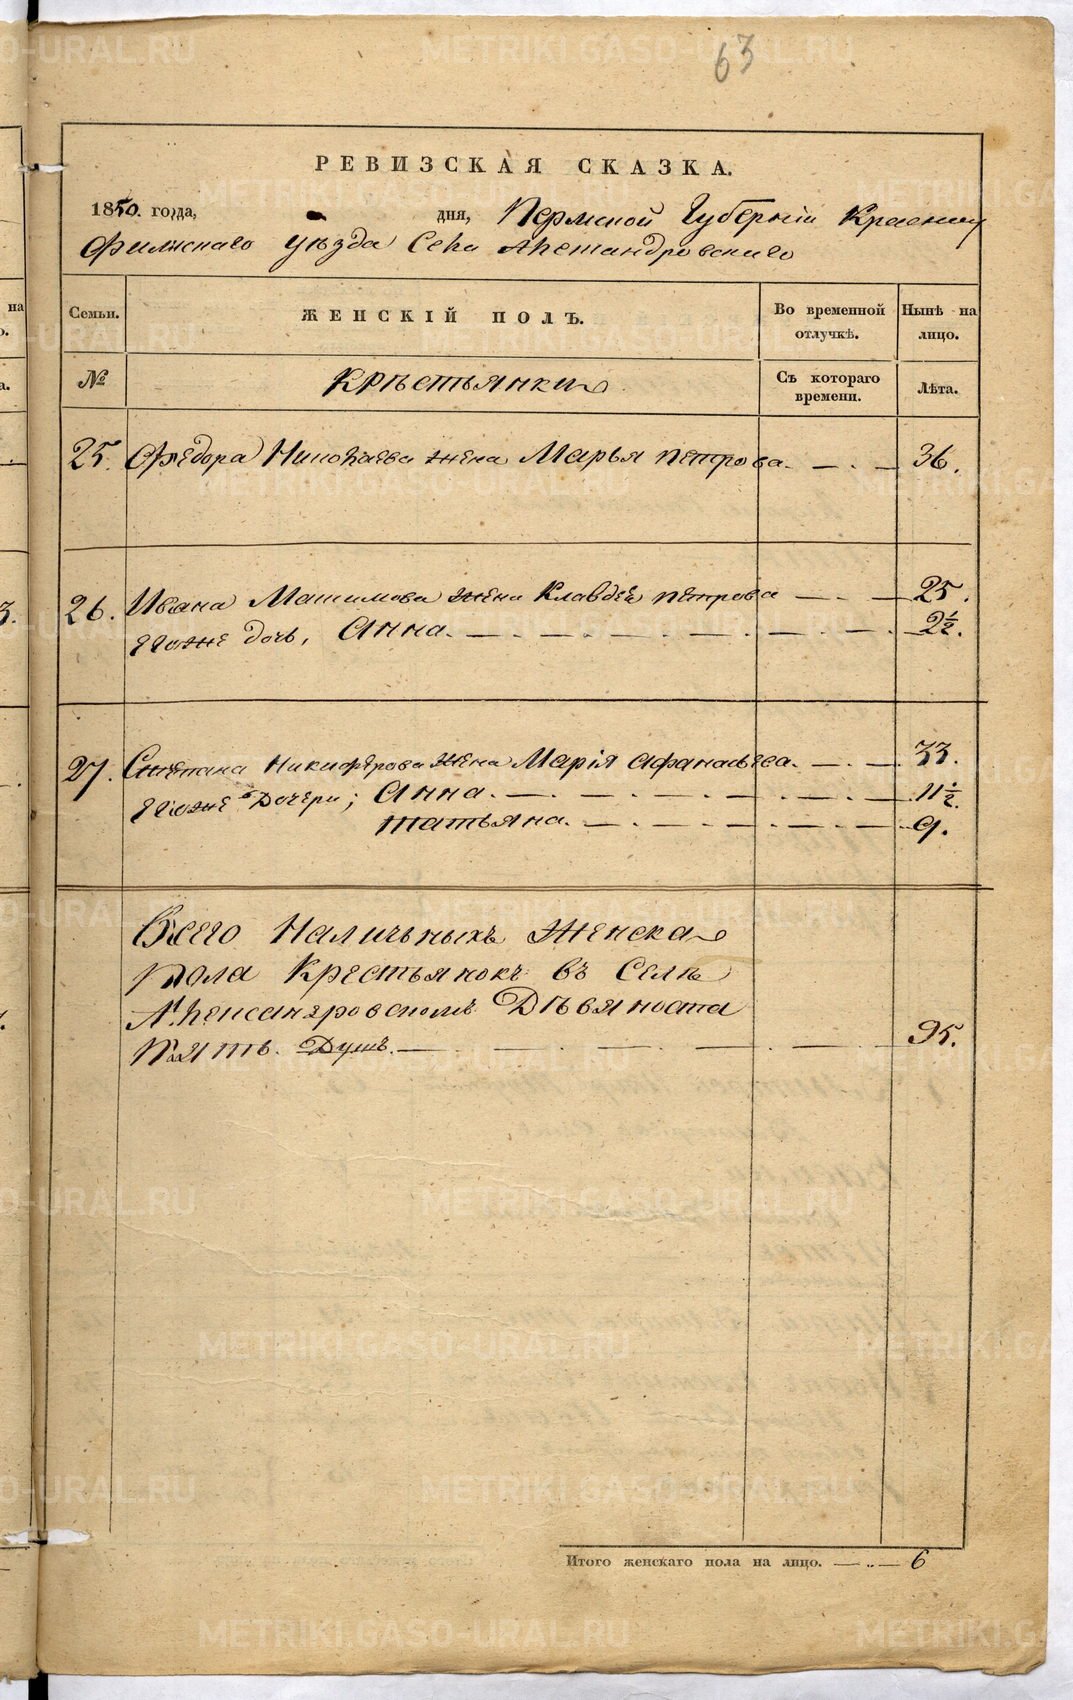 63
РЕВИЗСКАЯ СКАЗКА.
1850. года, дня, Пермской Губерніи Красноу
фимскаго уѣзда Села Александровскаго
Семьи. ЖЕНСКІЙ ПОЛЪ. Во временной отлучкѣ. Нынѣ на лицо.
№ Крѣстьянки Съ котораго времени. Лѣта.
25. Федора Николаева жена Марья Петрова. 36.
26. Ивана Максимова жена Клавдея Петрова 25.
Егоже дочь, Анна. 2½.
27. Степана Никифорова жена Марія Афанасьева. 33.
Егоже Дочери; Анна. 11½.
Татьяна. 9.
Всего Наличьныхъ Женска
Пола Крестьянокъ въ Селѣ
Александровскомъ Дѣвяноста
Пять Душъ. 95.
Итого женскаго пола на лицо. 6
METRIKI.GASO-URAL.RU